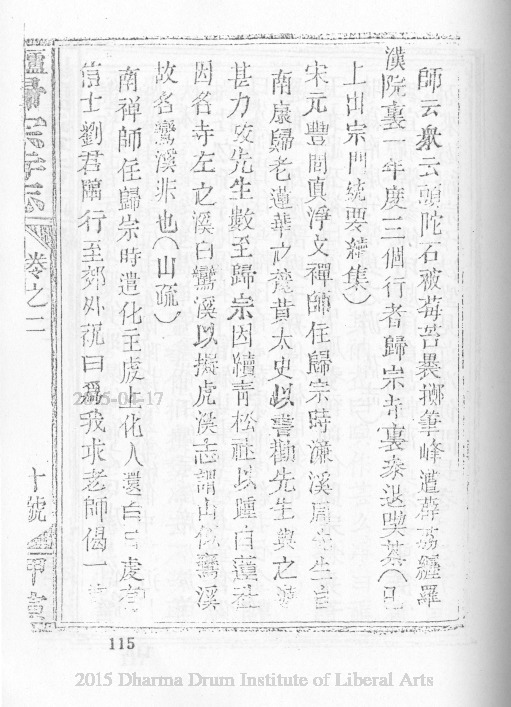 師云衆云頭陀石被莓苔裹擲筆峰遭薜荔纏羅
漢院裏一年度三個行者歸宗寺裏參退喫茶(已
上出宗門統要續集)
宋元豐間真淨文禪師住歸宗時濂溪周先生自
南康歸老蓮華之麓黃太史以書勸先生與之遊
甚力故先生數至歸宗因續青松社以踵白蓮社
因名寺左之溪曰鸞溪以擬虎溪志謂山似鸞溪
故名鸞溪非也(山疏)
南禪師住歸宗時遣化主虔上化人還白曰虔有
信士劉君隨行至郊外祝曰爲我求老師偈一
卷之二
十號
甲
115
2015-04-17
2015 Dharma Drum Institute of Liberal Arts